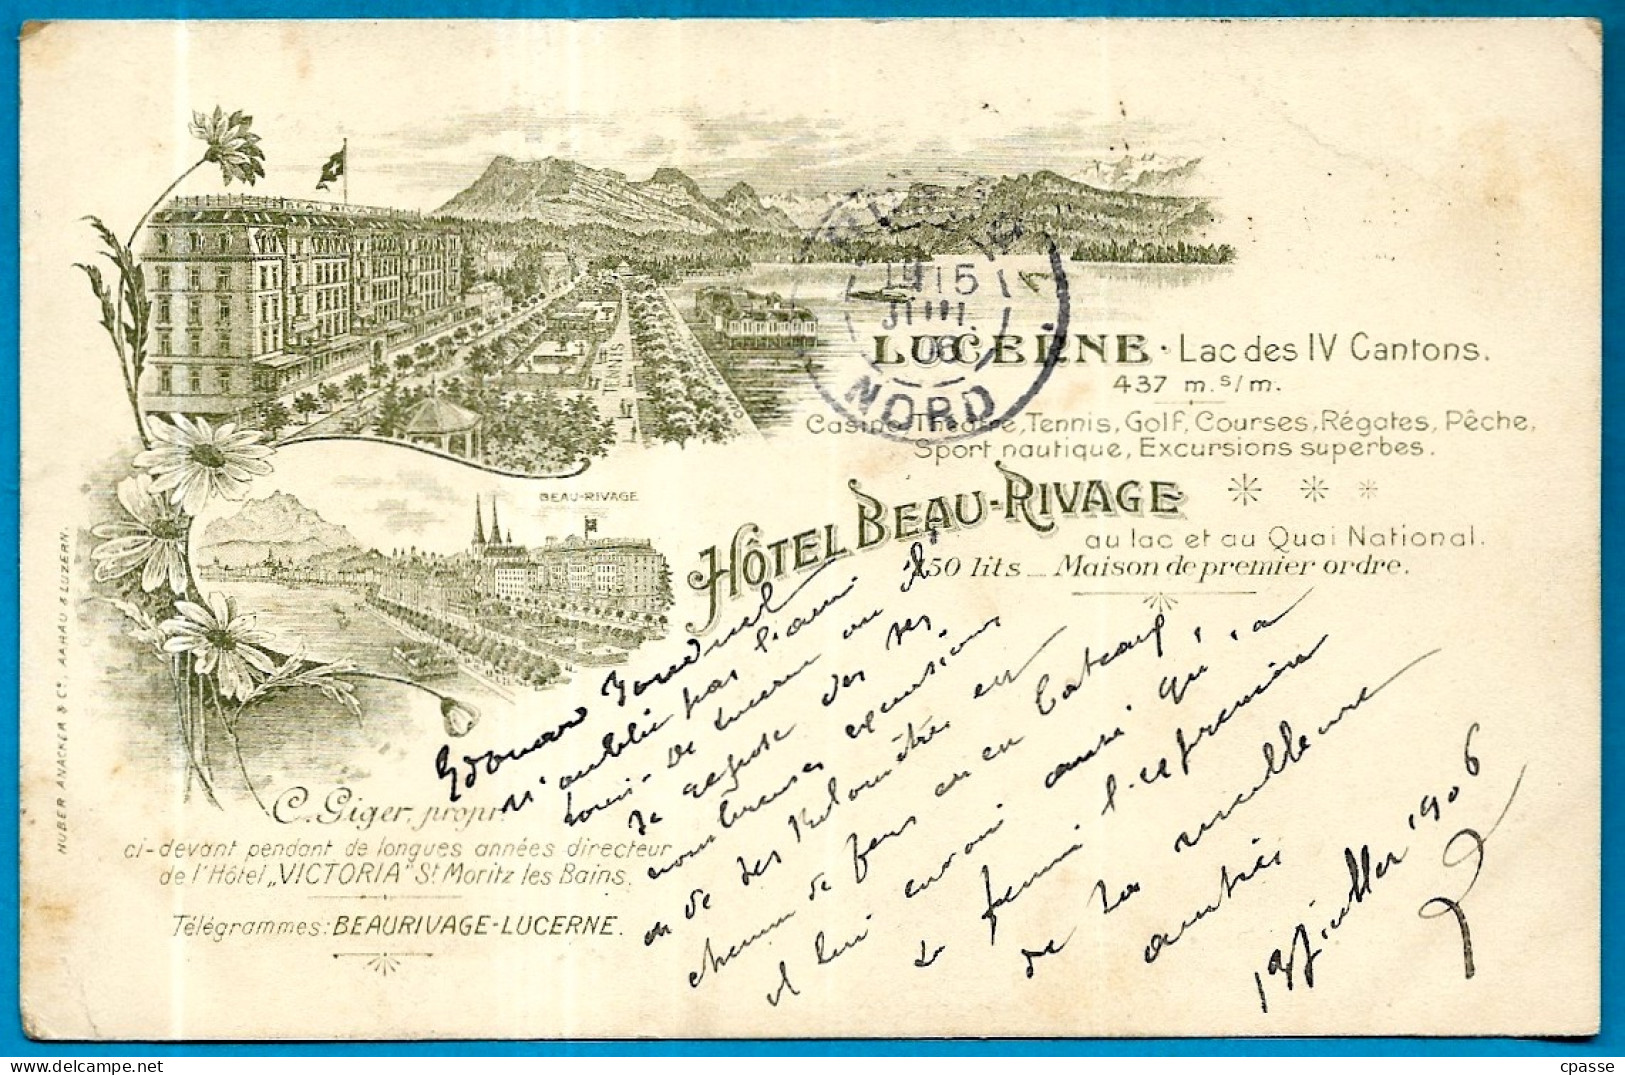 BEAU RIVAGE
TENNIS
BEAU-RIVAGE
LUCERNE · Lac des IV Cantons.
437 m.s/m.
Casino-Théâtre, Tennis, Golf, Courses, Régates, Pêche,
Sport nautique, Excursions superbes.
HÔTEL BEAU-RIVAGE
au lac et au Quai National.
150 lits _ Maison de premier ordre.
15
JUIL
06
NORD
C. Giger, propr.
ci-devant pendant de longues années directeur
de l'Hôtel „VICTORIA" St Moritz les Bains.
Télégrammes: BEAURIVAGE-LUCERNE.
HUBER ANACKER & Co. AARAU & LUZERN.
Edouard
n'oublie pas l'ami
Louis. De Lucerne où il
se repose de ses
nombreuses excursions
en
chemin de fer ou en bateaux,
il lui envoie ainsi qu'à
sa femme l'expression
de sa meilleure
amitié
1906
cpasse